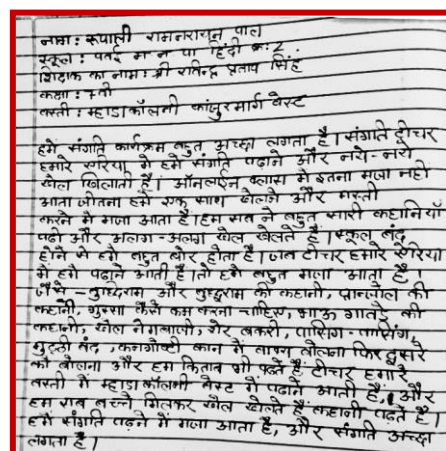 नाम: रूपाली रामनरायन पाल
स्कूल: पवई म न पा हिंदी क्र: 2.
शिक्षक का नाम: श्री रविन्द्र प्रताप सिंह
कक्षा: 7वी
बस्ती: म्हाडा कॉलनी कांजुरमार्ग वेस्ट
हमें संगति कार्यक्रम बहुत अच्छा लगता है। संगति टीचर
हमारे एरिया में हमें संगति पढ़ाने और नये-नये
खेल खिलाती हैं। ऑनलाईन क्लास में इतना मजा नही
आता जीतना हमें एक साथ खेलने और मस्ती
करने में मजा आता है। हम सब ने बहुत सारी कहानियाँ
पढ़ी और अलग-अलग खेल खेलते हैं। स्कूल बंद
होने से हमें बहुत बोर होता है। जब टीचर हमारे एरिया
में हमें पढ़ाने आती है। तो हमें बहुत मजा आता है,
जैसे - बुध्दिराम और बुध्दुराम की कहानी, की
कहानी, गुस्सा कैसे कम करना चाहिए, भाऊ की
कहानी, खेल नेमबाजी, शेर बकरी, पासिंग-पासिंग,
मुट्ठी बंद, कानगोष्टी कान में वाक्य बोलना फिर दुसरे
को बोलना और हम किताब भी पढ़ते हैं। टीचर हमारे
बस्ती में म्हाडा कॉलनी वेस्ट में पढ़ाने आती हैं, और
हम सब बच्चे मिलकर खेल खेलते हैं कहानी पढ़ते हैं।
हमें संगति पढ़ने में मजा आता है, और संगति अच्छा
लगता है।